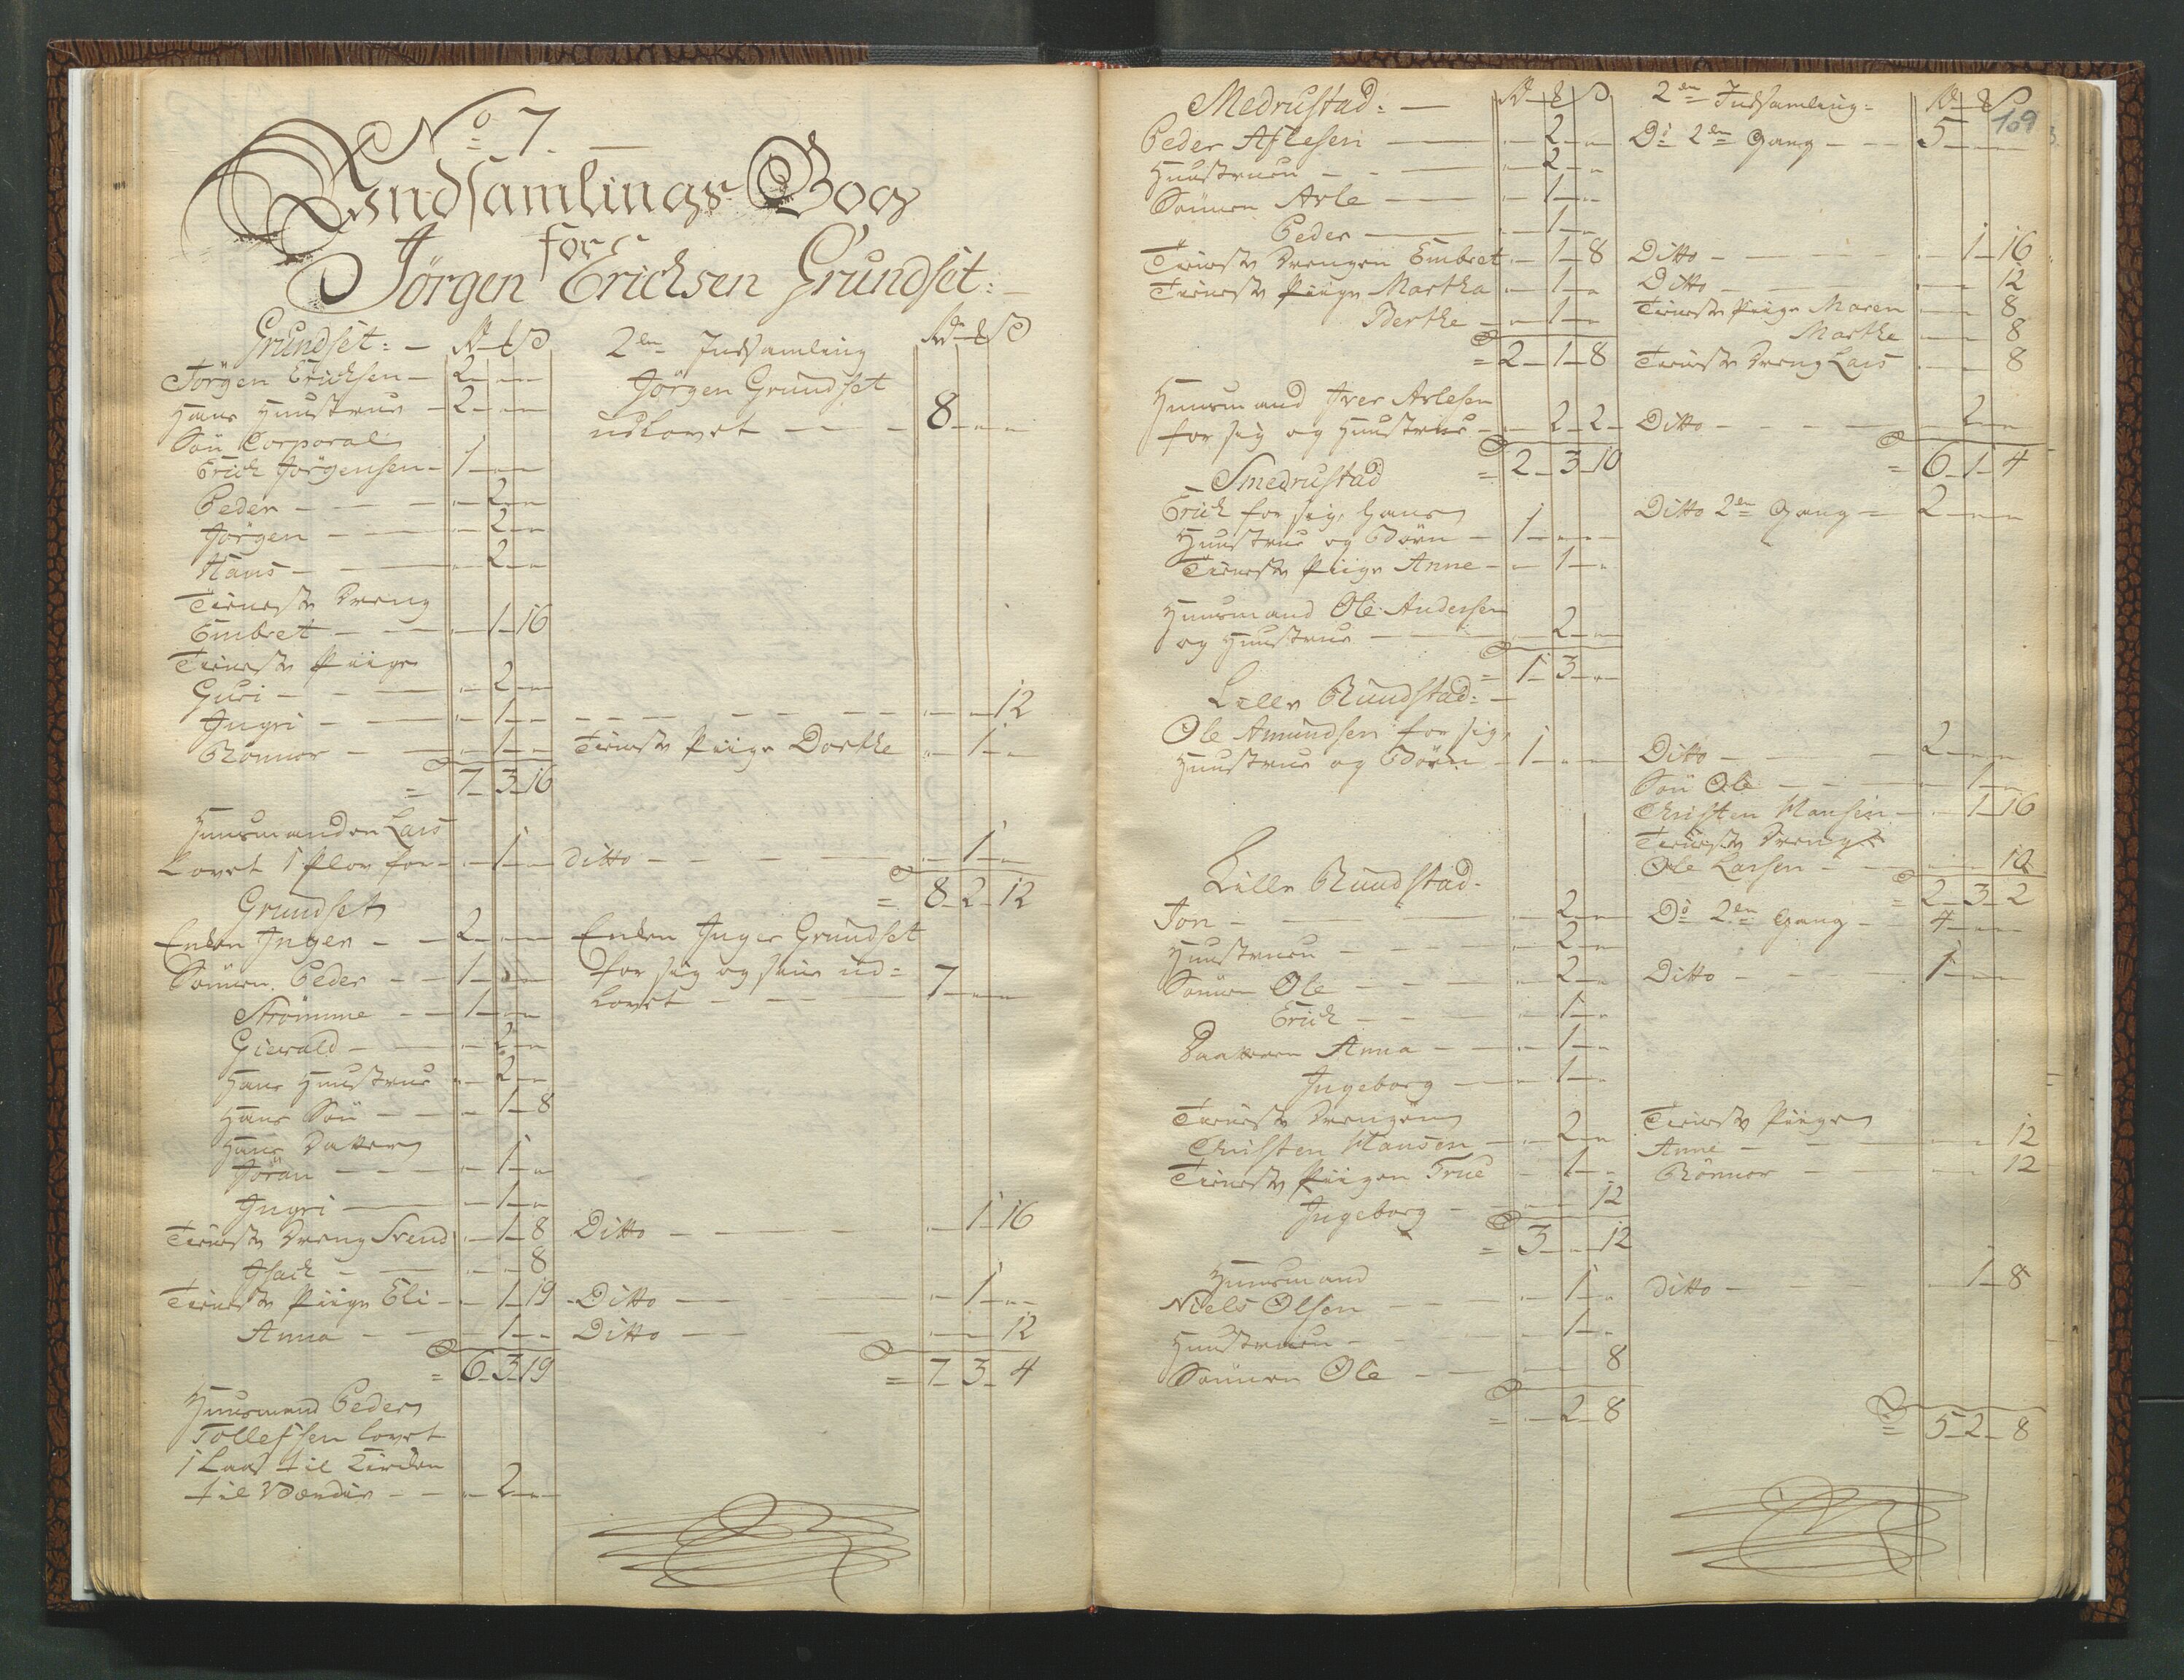 No 7.
Indsamlings-Bog
for
Jörgen Erichsen Grundset:
Grundset: Rd
Jörgen Erichsen 2
Hans Huustrue 2
Sön Corporal
Erich Jörgensen 1
Peder 2
Jörgen 2
Hans 2
Tieneste Dreng
Embret 1 16
Tieneste Piige
Guri 2
Ingri 1
Rönnor 1
= 7 3 16
Huusmanden Lars
Lovet 1 Plov for 1
Grundset
Enken Inger 2
Sönnen Peder 1
Strömme 1
Giewald 2
Hans Huustrue 2
Hans Sön 1 8
Hans Datter
Jöran 1
Ingri 1
Tieneste Dreng Svend 1 8
Isach 8
Tieneste Piige Eli 1 19
Anna 1
= 6 3 19
Huusmand Peder
Tollefsen lovet
1 Laas til Kirken
til Værdie 2
2den Indsamling Rd
Jörgen Grundset
udlovet 8
12
Tieneste Piige Dorthe 1
ditto 1
= 8 2 12
Enken Inger Grundset
for sig og sine ud=
lovet 7
Ditto 1 16
Ditto 1
Ditto 12
= 7 3 4
109
Medrustad: Rd
Peder Aflesen 2
Huustruen 2
Sönnen Arle 1
Peder 1
Tieneste Drengen Embret 1 8
Tieneste Piige Martha 1
Berthe 1
= 2 1 8
Huusmand Iver Arlesen
for sig og Huustrue 2 2
= 2 3 10
Smedrustad
Erich for sig, Hans
Huustrue og Börn 1
Tieneste Piige Anne 1
Huusmand Ole Andersen
og Huustrue 2
= 1 3
Lille Rundstad:
Ole Amundsen for sig,
Huustrue og Börn 1
Lille Rundstad
Jon 2
Huustruen 2
Sönnen Ole 2
Erich 1
Daatteren Anna 1
Ingeborg 1
Tieneste Drengen
Christen Hansen 2
Tieneste Piigen True 1
Ingeborg 12
= 3 12
Huusmand
Niels Olsen 1
Huustruen 1
Sönnen Ole 8
= 2 8
2den Indsamling: Rd
Do 2den Gang 5
Ditto 1 16
Ditto 12
Tieneste Piige Maren 8
Marthe 8
Tieneste Dreng Lars 8
Ditto 2
= 6 1 4
Ditto 2den Gang 2
Ditto 2
Sön Ole 1
Christen Hansen 1 16
Tieneste Dreng
Ole Larsen 10
= 2 3 2
Do 2den Gang 4
Ditto 1
Tieneste Piige
Anne 12
Rönnor 12
ditto 1 8
= 5 2 8